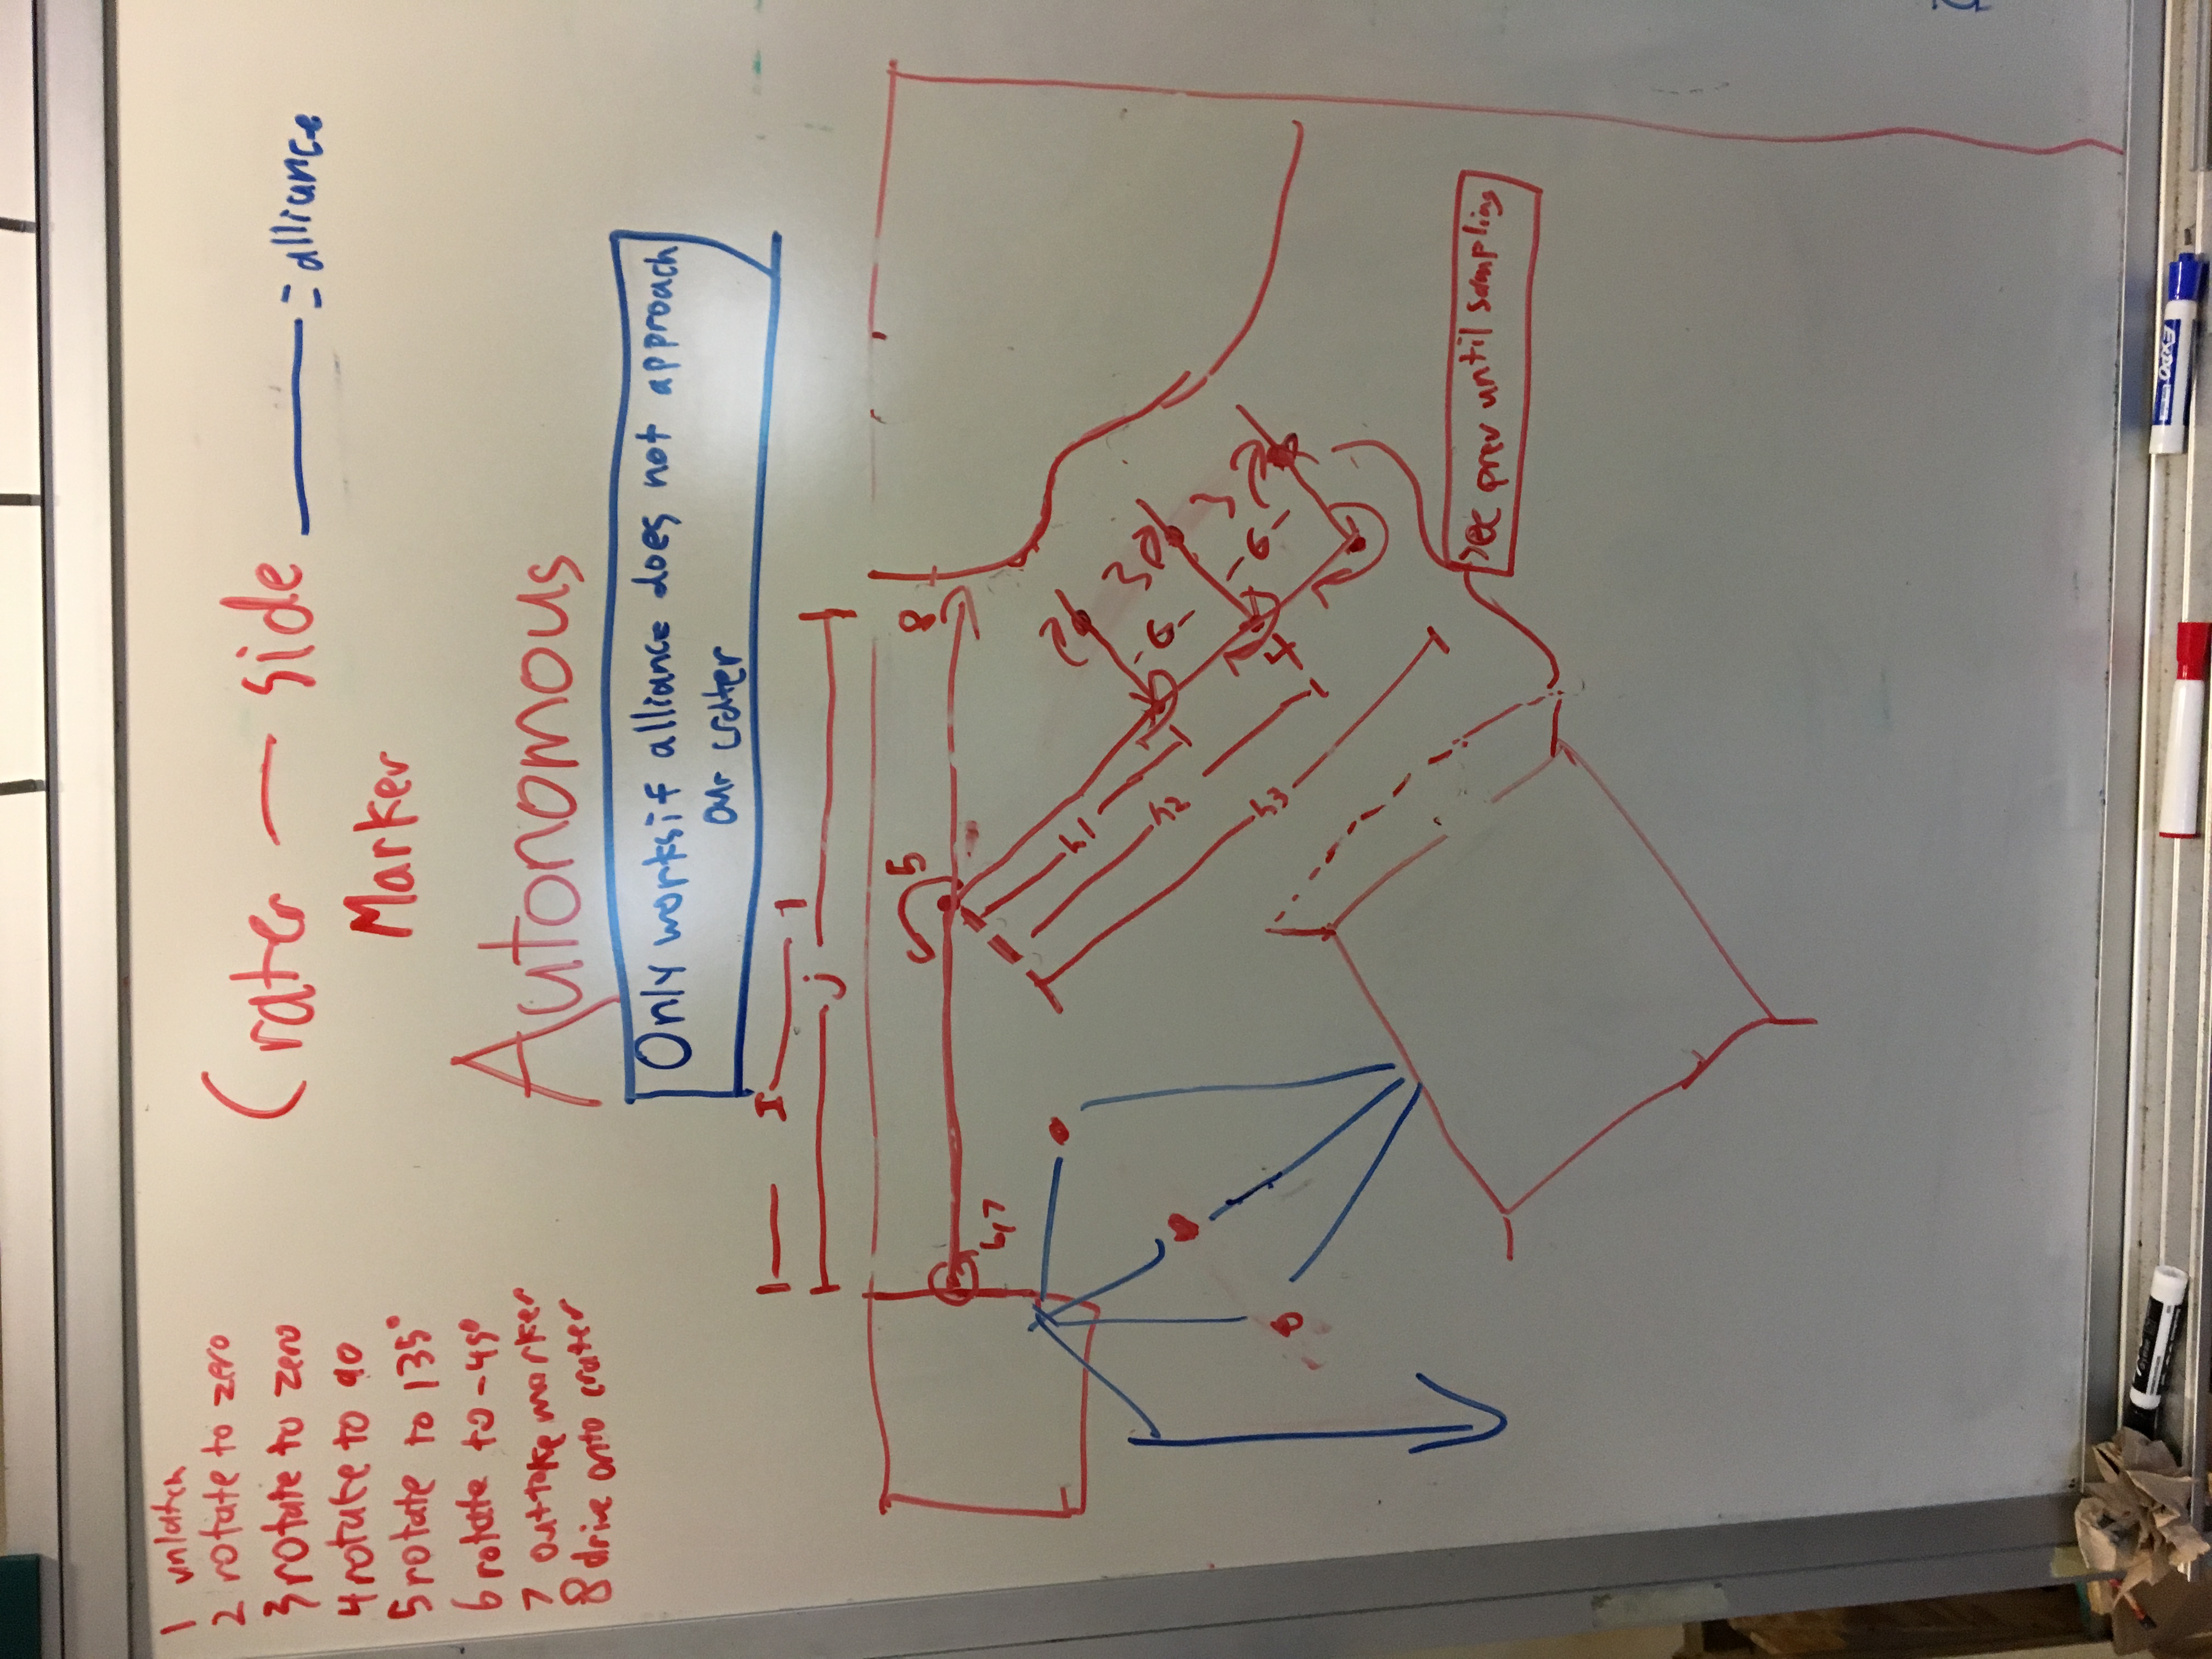 1 unlatch
2 rotate to zero
3 rotate to zero
4 rotate to 90
5 rotate to 135°
6 rotate to -45°
7 outtake marker
8 drive onto crater
Crater — side
= alliance
Marker
Autonomous
Only works if alliance does not approach
our crater
I
j
5
8
6,7
h1
h2
h3
3
3
G
G
4
See prev until sampling
EXPO